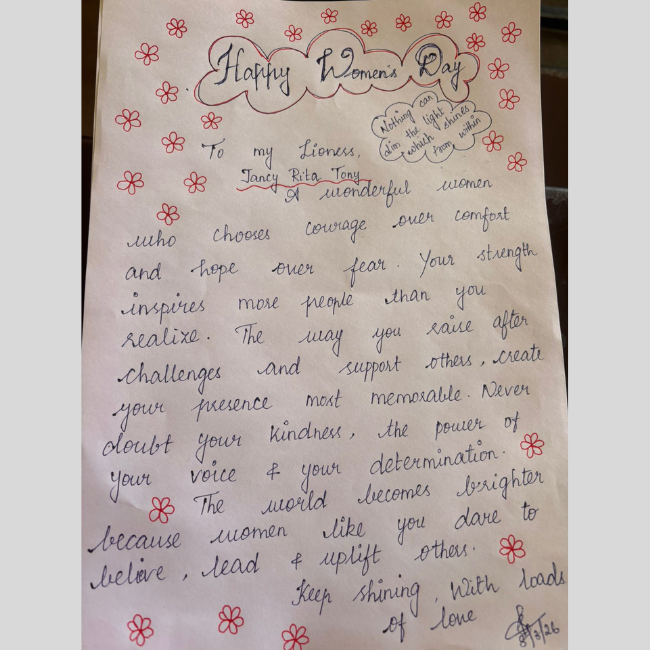 Happy Women's Day
Nothing can
dim the light
which shines
from within
To my Lioness,
Jancy Rita Tony
A wonderful women
who chooses courage over comfort
and hope over fear. Your strength
inspires more people than you
realize. The way you raise after
challenges and support others, create
your presence most memorable. Never
doubt your kindness, the power of
your voice & your determination.
The world becomes brighter
because women like you dare to
believe, lead & uplift others.
Keep shining, With loads
of love
8/3/26